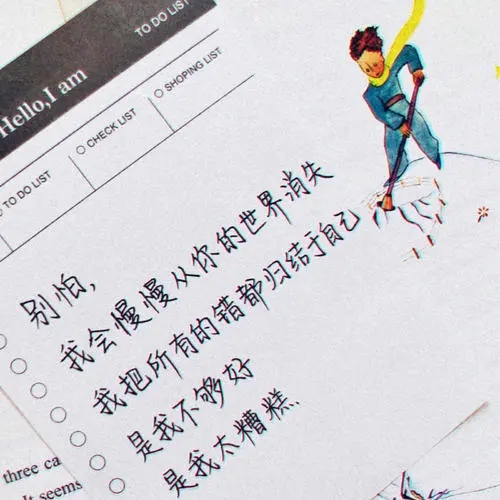 TO DO LIST
Hello,I am
SHOPING LIST
CHECK LIST
TO DO LIST
别怕,
我会慢慢从你的世界消失
我把所有的错都归结于自己
是我不够好
是我太糟糕、
three ca
It seems